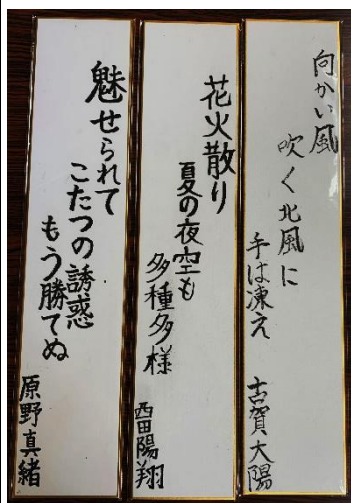 向かい風
吹く北風に
手は凍え
古賀大陽
花火散り
夏の夜空も
多種多様
西田陽翔
魅せられて
こたつの誘惑
もう勝てぬ
原野真緒